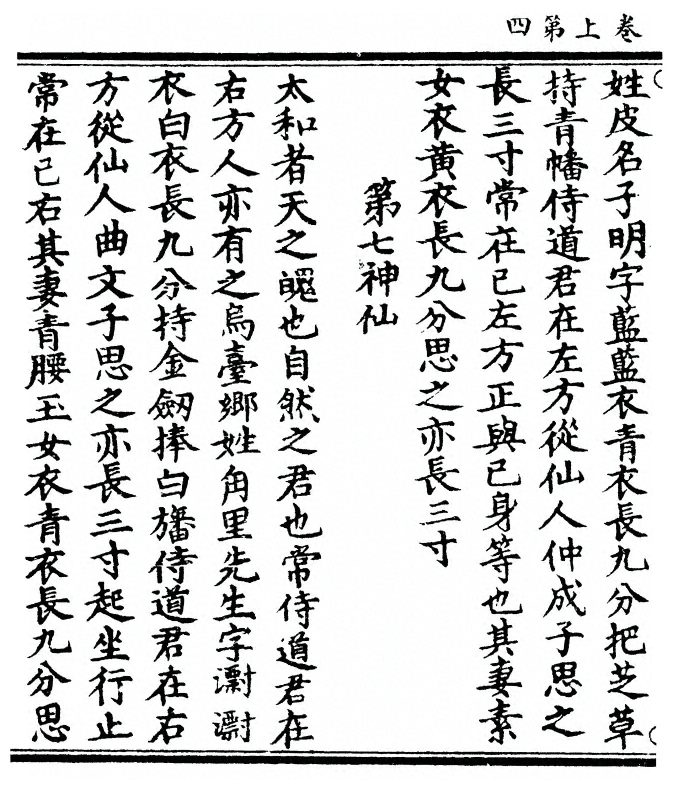 卷上第四
姓皮名子明字藍藍衣青衣長九分把芝草
持青幡侍道君在左方從仙人仲成子思之
長三寸常在己左方正與己身等也其妻素
女衣黄衣長九分思之亦長三寸
第七神仙
太和者天之魄也自然之君也常侍道君在
右方人亦有之烏臺鄉姓角里先生字灂灂
衣白衣長九分持金劒捧白旛侍道君在右
方從仙人曲文子思之亦長三寸起坐行止
常在己右其妻青腰玉女衣青衣長九分思